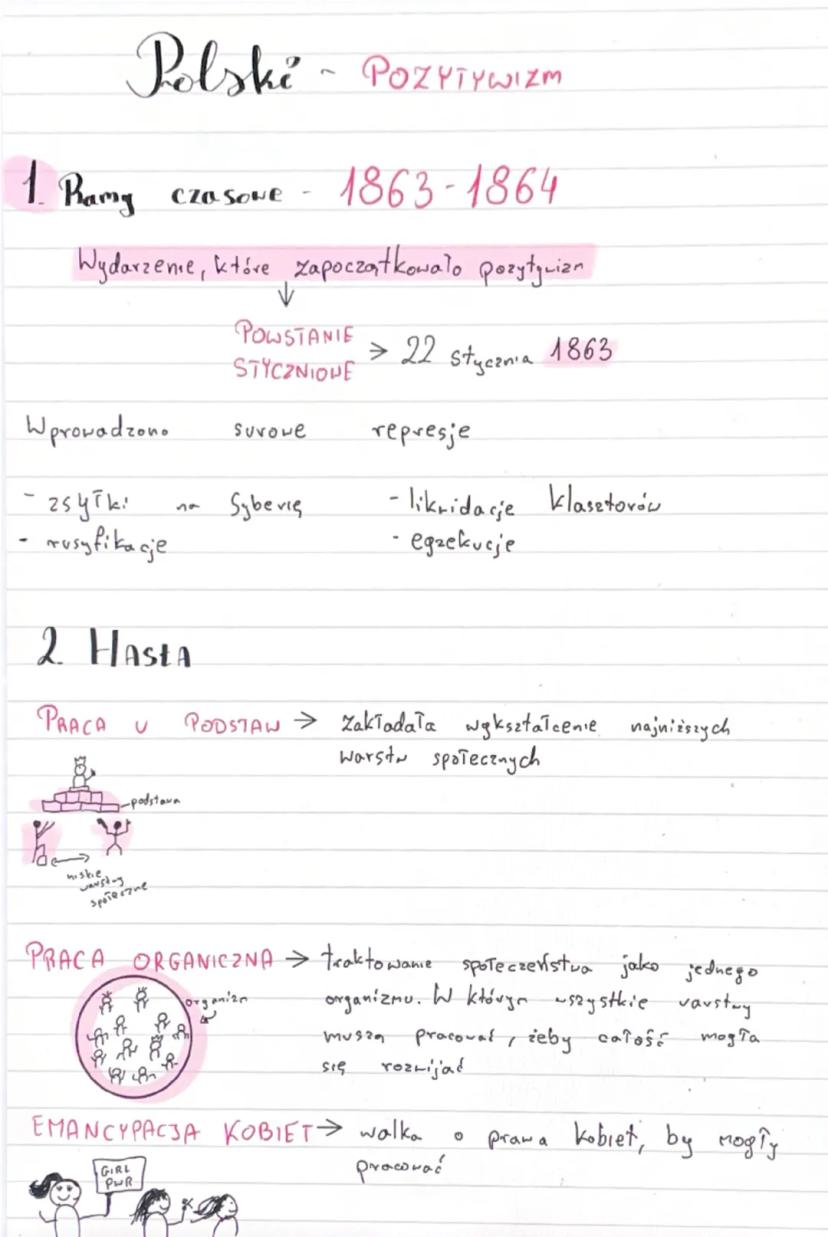 Polski - POZYTYWIZM
1. Ramy czasowe - 1863-1864
Wydarzenie, które zapoczątkowało pozytywizm
↓
POWSTANIE
STYCZNIOWE → 22 stycznia 1863
Wprowadzono surowe represje
- zsyłki na Syberię
- likwidacje klasztorów
- rusyfikacje
- egzekucje
2. HASŁA
PRACA U PODSTAW → zakładała wykształcenie najniższych
warstw społecznych
podstawa
niskie
warstwy
społeczne
PRACA ORGANICZNA → traktowanie społeczeństwa jako jednego
organizm
organizmu. W którym wszystkie warstwy
muszą pracować, żeby całość mogła
się rozwijać
EMANCYPACJA KOBIET → walka o prawa kobiet, by mogły
pracować
GIRL
PWR